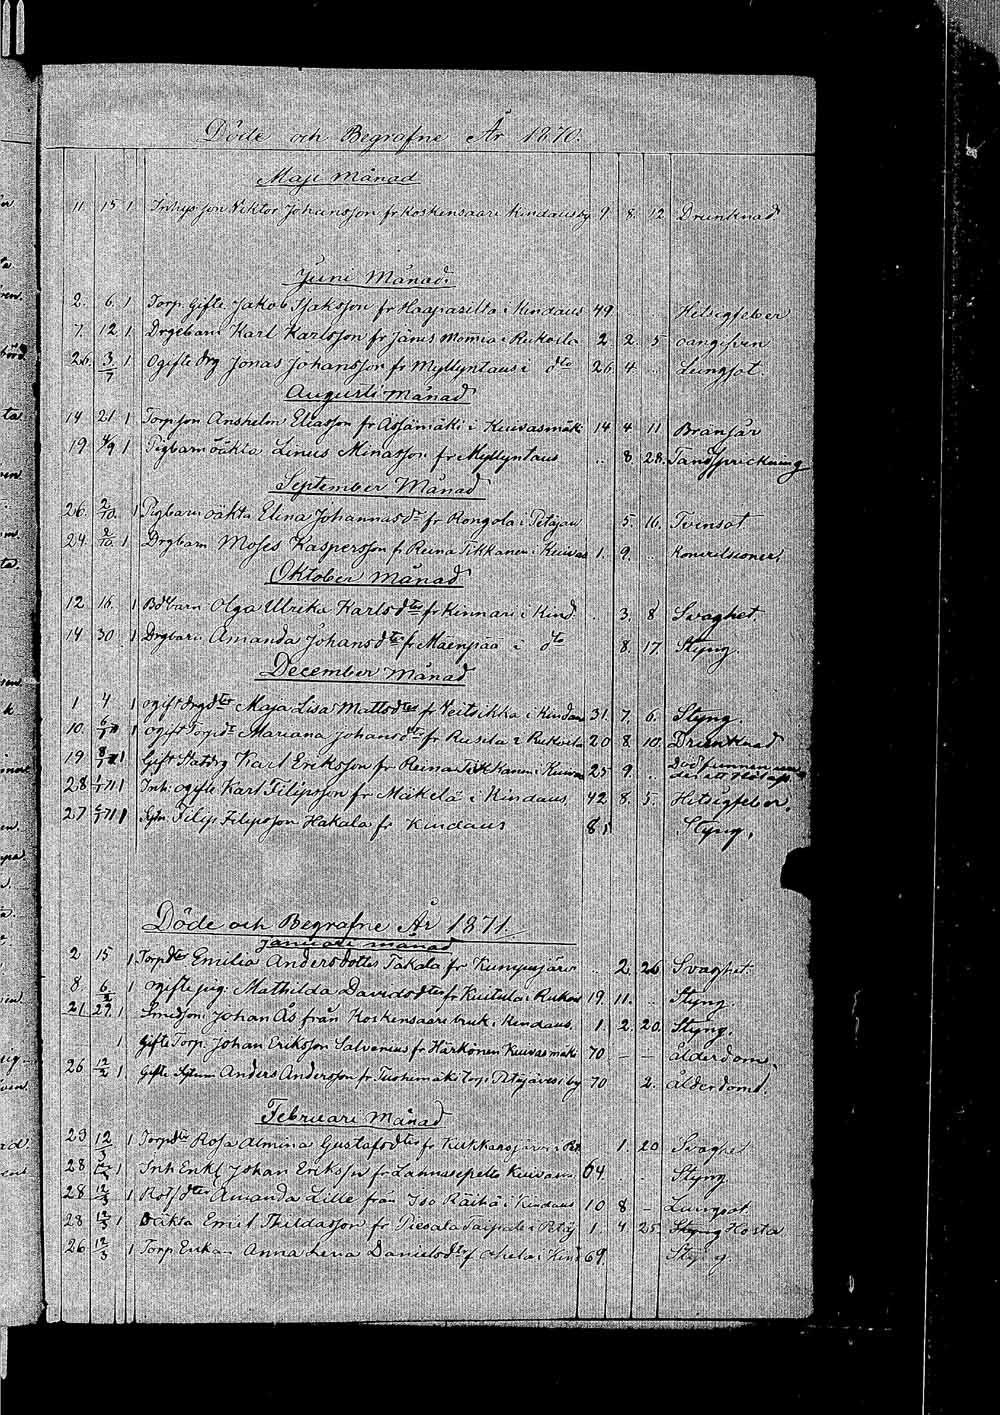 Döde och Begrafne År 1870.
Maji Månad
11 15 1 Inhys: son Viktor Johansson fr Koskensaari Kindaus by 9 8. 12 Drunknad
Juni Månad.
2. 6. 1 Torp. Gifte Jakob Isaksson fr Haapasilta i Kindaus 49 . . Hetsigfeber
7. 12. 1 Drgebarn Karl Karlsson fr Jänis Momia i Rukoila 2 2. 5 oangifven
26. 3/7 1 Ogifte drg Jonas Johansson fr Myllyntaus i dto 26 4 .. Lungsot.
Augusti Månad
14 21. 1 Torp. son Anshelm Eliasson fr Assämäki i Kuivasmäki 14 4 11 Bränsår
19 4/9 1 Pigbarn oäkta Linus Minasson fr Myllyntaus .. 8. 28. Tandsprickning
September Månad
26. 2/10. 1 Pigbarn oäkta Elina Johannasdr fr Rongola i Petäjav 5. 16. Tvinsot
24. 2/10 1 Drgbarn Moses Kaspersson fr Reina Tikkanen i Kuivas 1. 9. .. Konvulsioner.
Oktober Månad
12. 16. 1 Bdebarn Olga Ulrika Karlsdter fr Kinnari i Kind. . 3. 8 Svaghet.
14 30. 1 Drgbarn Amanda Johansdter fr Mäenpää i dto 8. 17. Styng.
December Månad
1 4 1 ogift drgdter Maja Lisa Mattsdter fr Veitsikka i Kindaus 31. 7. 6. Styng.
10. 6/1 71 1 ogift Torpdr Mariana Johansdr fr Rusila i Rukoila 20 8. 10. Drunknad
19 8/1 71 1 Gift Statdrg Karl Eriksson fr Reina Tikkanen i Kuivas 25 9. .. Död funnen
28 1/1 71 1 Inh: ogifte Karl Filipsson fr Mäkelä i Kindaus, 42 8. 5. Hetsigfeber.
27 6/1 71 1 Sytn. Filip Filipsson Hakala fr Kindaus 85 Styng.
Döde och Begrafne År 1871.
Januari månad
2 15 1 Torpdter Emilia Andersdotter Takala fr Kumpusjärvi .. 2. 26 Svaghet.
8. 6/2 1 ogifte pig. Mathilda Davidsdter fr Kuitula i Rukoi 19 11. .. Styng.
21. 29. 1 Smedson: Johan Ås från Koskensaari bruk i Kindaus. 1. 2. 20. Styng.
1 Gifte Torp. Johan Eriksson Salvenius fr Härkönen Kuivasmäki 70. – – Ålderdom
26 12/2 1 Gifte Sytnin Anders Andersson fr Tuohimäki torp: Petäjävesi by 70 2. Ålderdomd.
Februari Månad
23 12/3 1 Torpdtr Rosa Almina Gustafsdter fr Kukkarojärvi i Pet 1. 20 Svaghet
28 12/3 1 Inh Enkl Johan Eriksson fr Lannasepelto Kuivas 64. . . Styng
28 12/3 1 Rotsdter Amanda Lille från Iso Räihä i Kindaus 10 8 – Lungsot.
28 12/3 1 Oäkta Emil Thildasson fr Piesala Taipale i Petäj 1. 4 25. Styng Hosta
26 12/3 1 Torp Enkan Anna Lena Danielsdtr f i Kind 69. Styng.